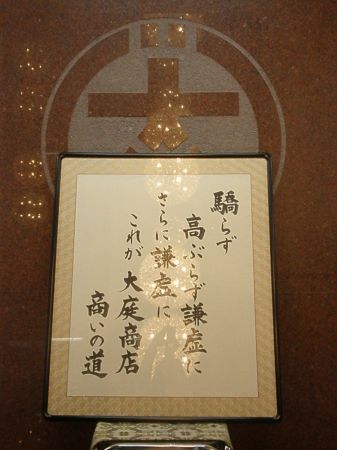 驕らず
高ぶらず謙虚に
さらに謙虚に
これが大庭商店
商いの道